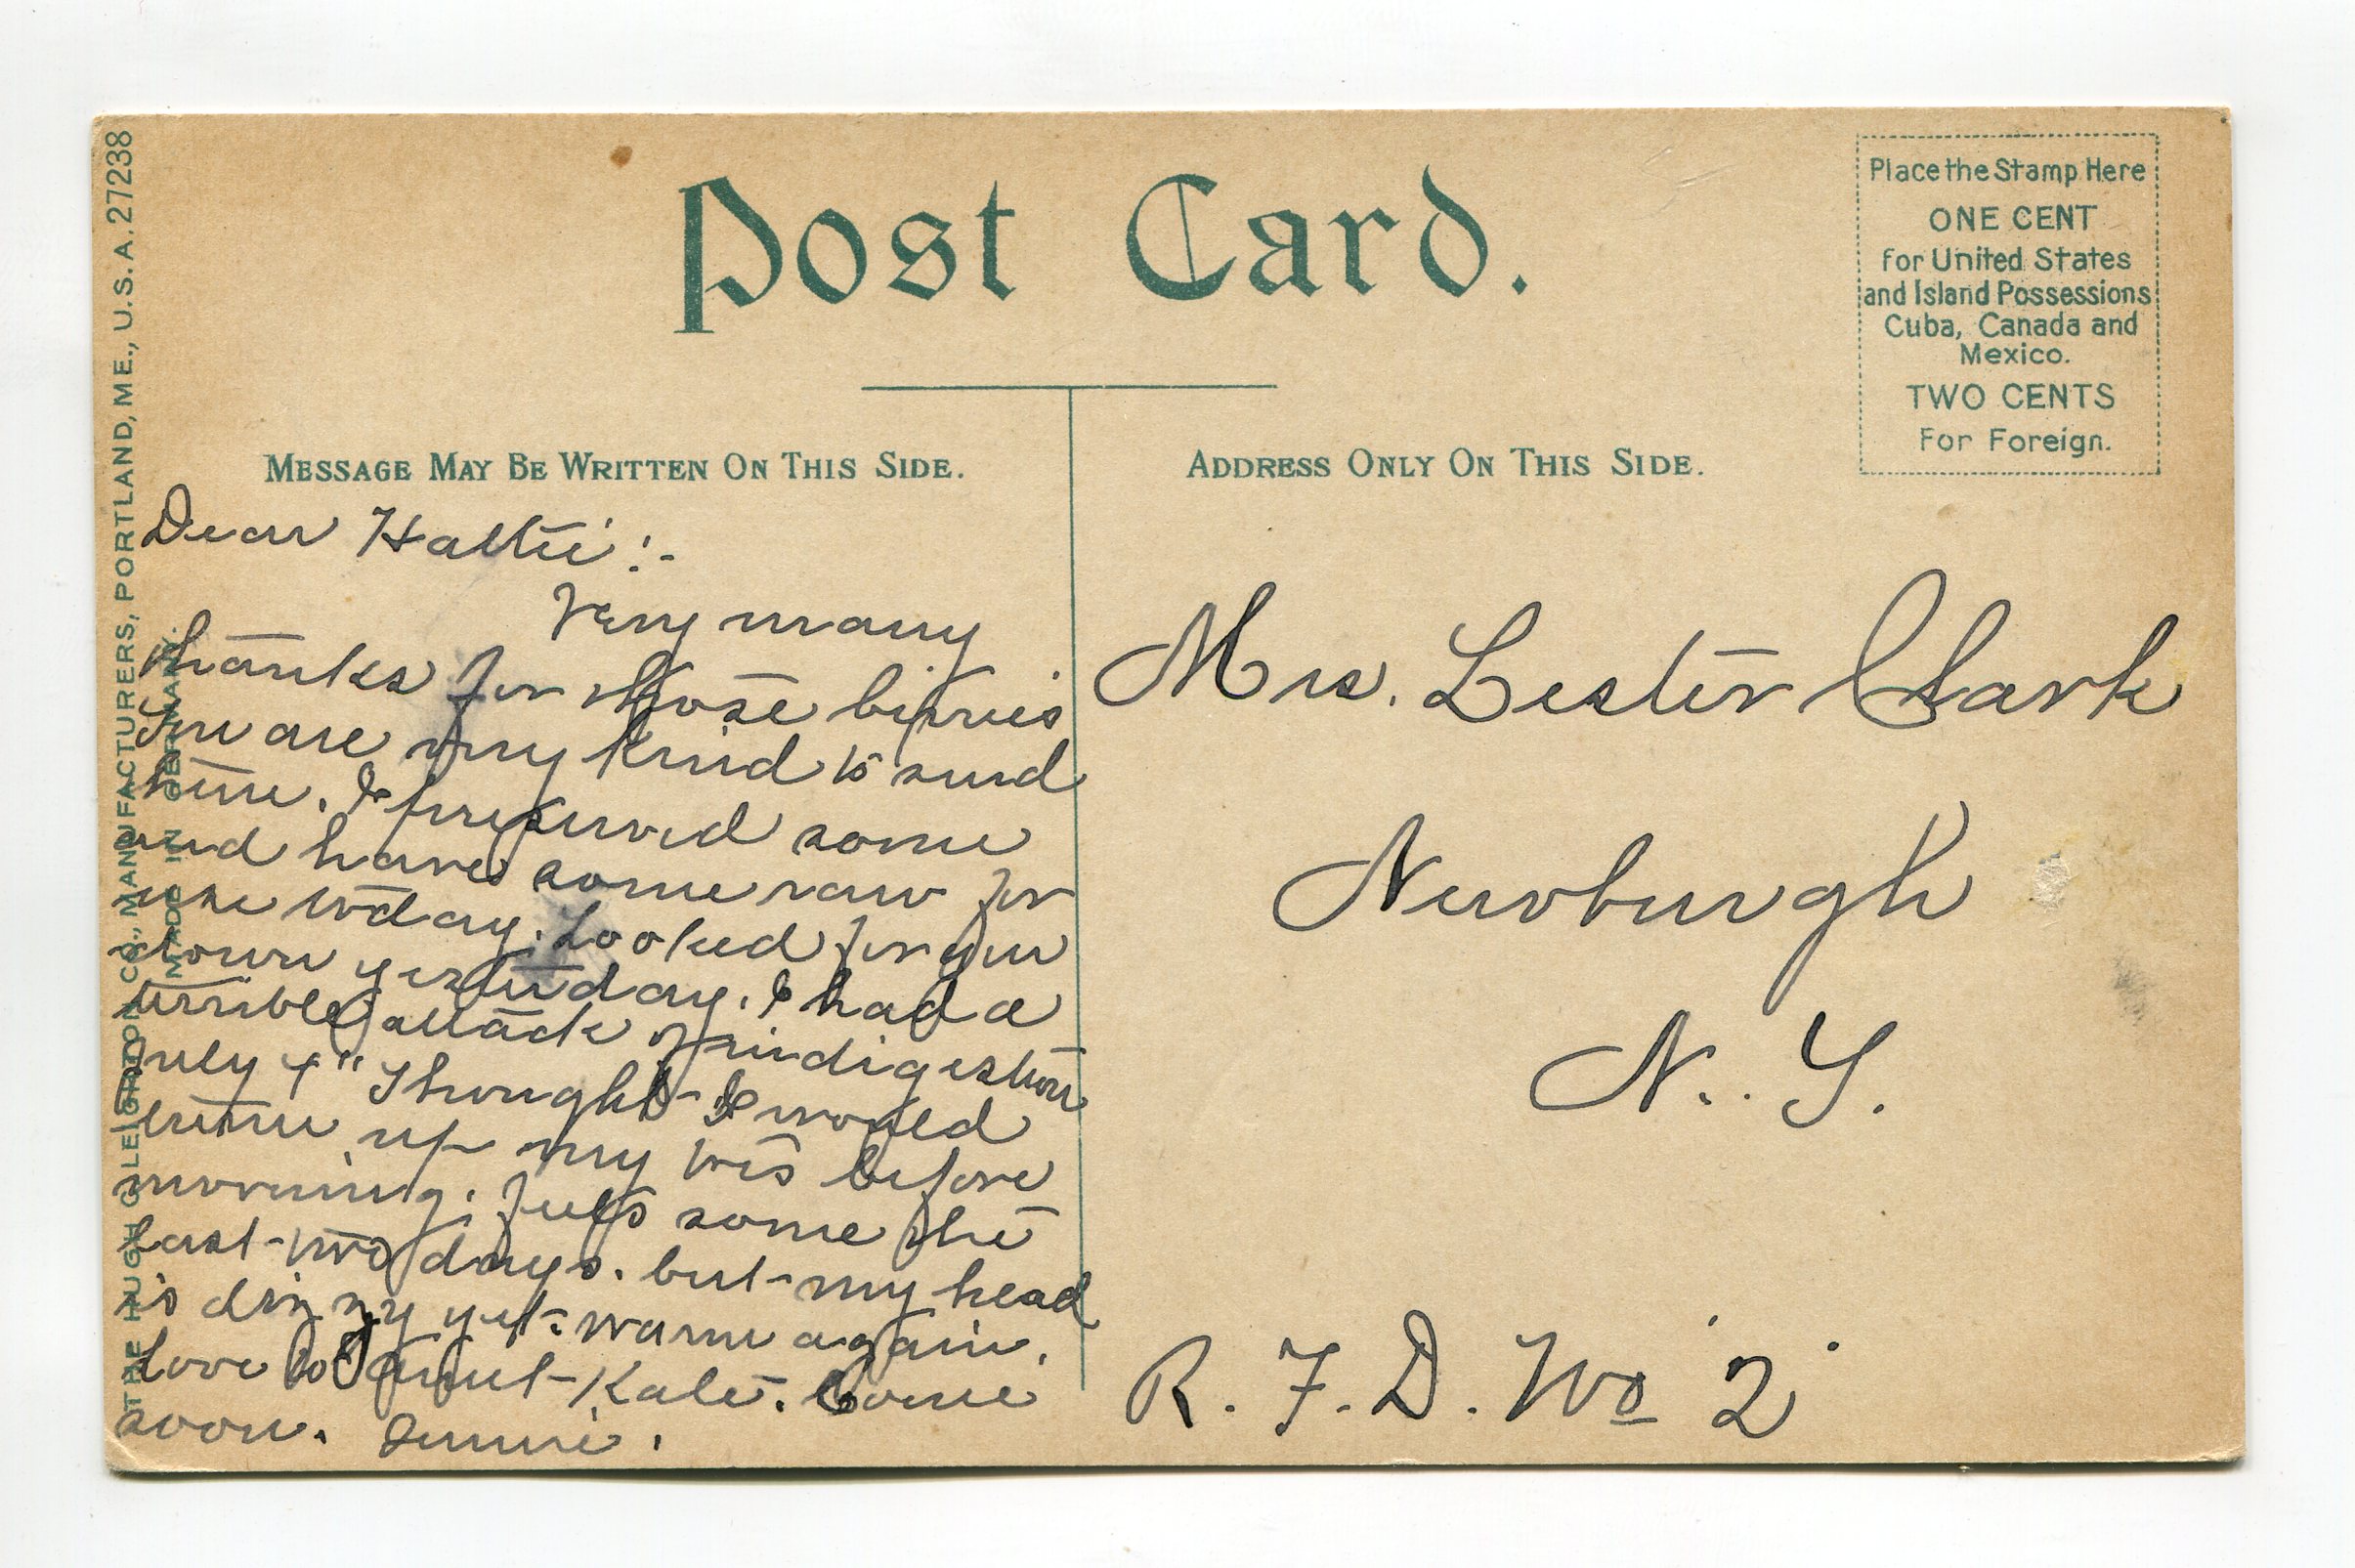 Post Card.
Place the Stamp Here
ONE CENT
for United States
and Island Possessions
Cuba, Canada and
Mexico.
TWO CENTS
For Foreign.
MESSAGE MAY BE WRITTEN ON THIS SIDE.
ADDRESS ONLY ON THIS SIDE.
THE HUGH C. LEIGHTON CO., MANUFACTURERS, PORTLAND, ME., U.S.A. 27238
MADE IN GERMANY.
Dear Hattie:-
Very many
thanks for those berries
You are very kind to send
him. I preserved some
and have some raw for
use today. Looked for you
down yesterday. I had a
terrible attack of indigestion
July 4" Thought I would
turn up my toes before
morning. Feels some the
last two days. but my head
is dizzy yet. warm again.
Love to Aunt Kate. Come
soon. Jennie.
Mrs. Lester Clark
Newburgh
N.Y.
R.F.D. No 2